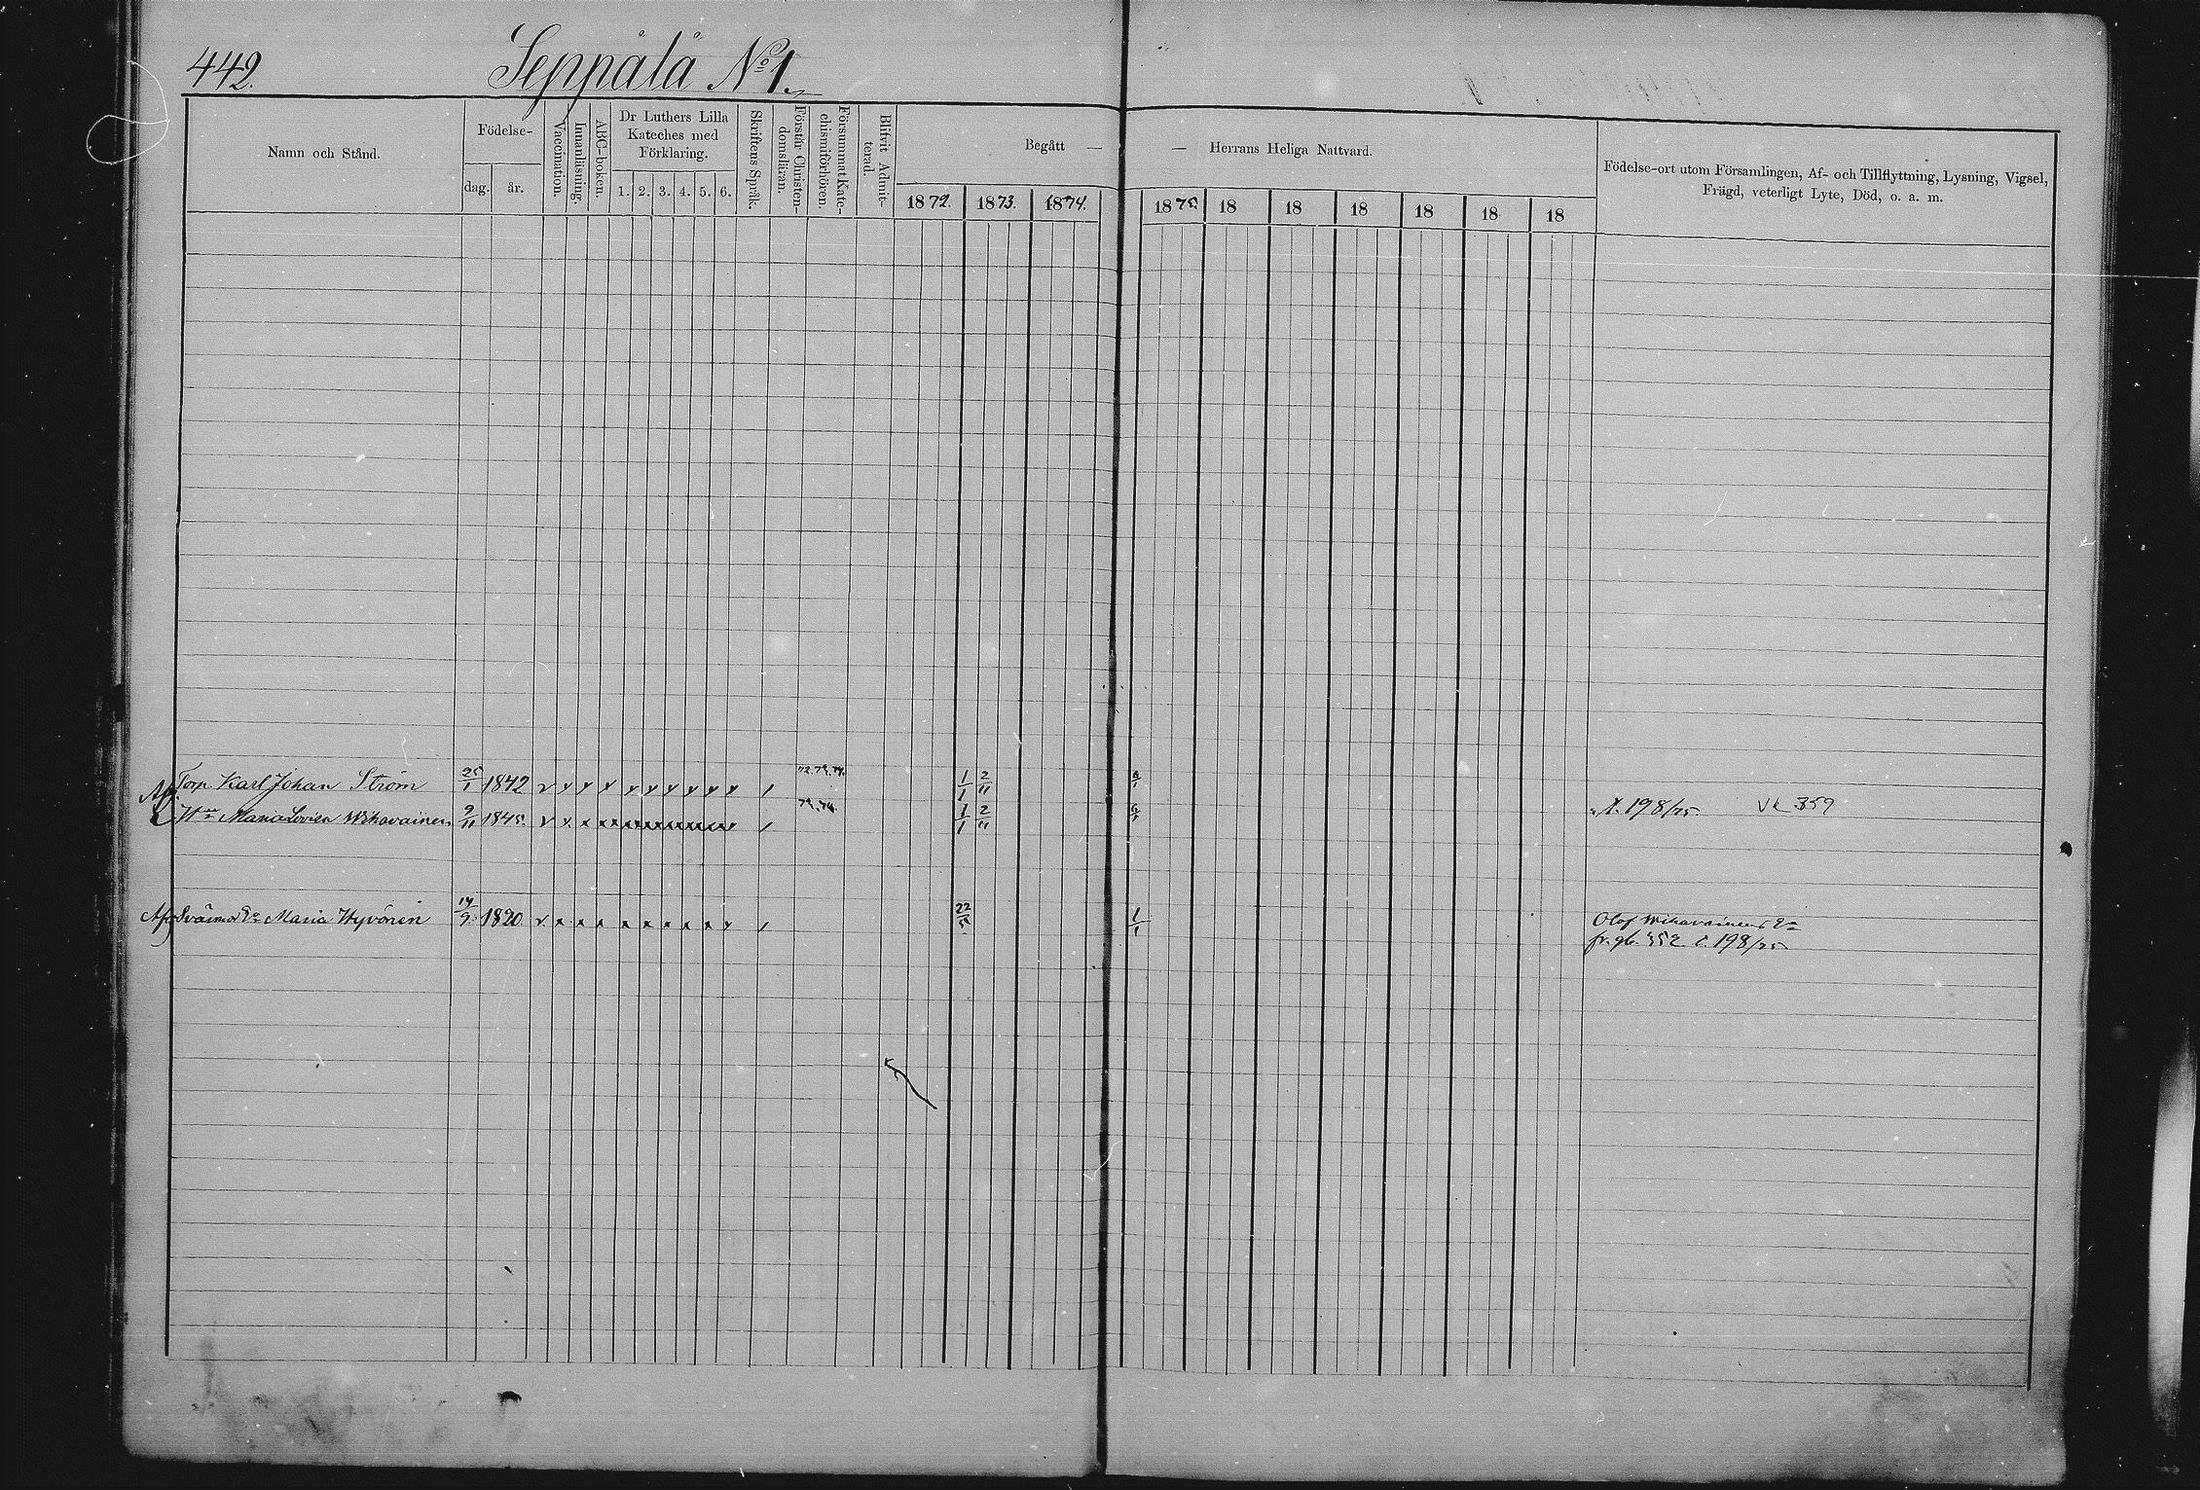 442.
Seppälä No 1.
Namn och Stånd.
Födelse-
dag.
år.
Vaccination.
Innanläsning.
ABC-boken.
Dr Luthers Lilla
Kateches med
Förklaring.
1. 2. 3. 4. 5. 6.
Skriftens Språk.
Förstår Christen-
domsläran.
Försummat Kate-
chismiförhören.
Blifvit Admit-
terad.
Begått —
— Herrans Heliga Nattvard.
1872. 1873. 1874. 1875. 18 18 18 18 18 18
Födelse-ort utom Församlingen, Af- och Tillflyttning, Lysning, Vigsel,
Frägd, veterligt Lyte, Död, o. a. m.
Torp. Karl Johan Ström 25/1 1842 72. 73. 74. 1/1 2/11
Hu Maria Lovisa Wihavainen 9/11 1845. 73. 74. 1/1 2/11 198/75. Vk 359
Maria Hyvönen 14/9. 1820 22/5. 1/1 Olof Wihavainens
fr. gb. 352 198/75